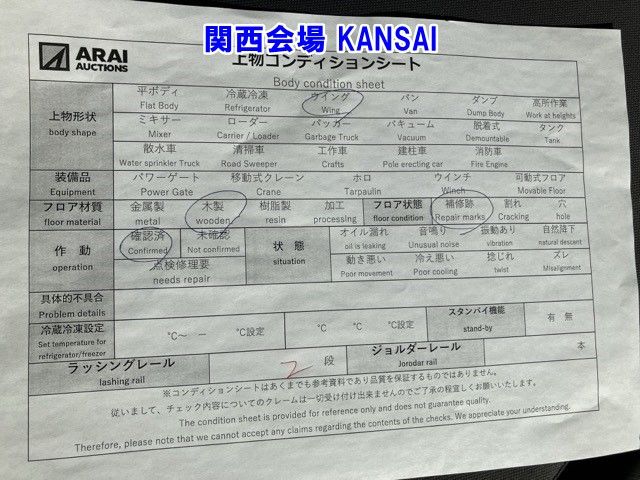 関西会場 KANSAI
ARAI AUCTIONS
上物コンディションシート
Body condition sheet
上物形状 body shape
平ボディ 冷蔵冷凍 ウイング バン ダンプ 高所作業
Flat Body Refrigerator Wing Van Dump Body Work at heights
ミキサー ローダー パッカー バキューム 脱着式 タンク
Mixer Carrier / Loader Garbage Truck Vacuum Demountable Tank
散水車 清掃車 工作車 建柱車 消防車
Water sprinkler Truck Road Sweeper Crafts Pole erecting car Fire Engine
装備品 パワーゲート 移動式クレーン ホロ ウインチ 可動式フロア
Equipment Power Gate Crane Tarpaulin Winch Movable Floor
フロア材質 金属製 木製 樹脂製 加工 フロア状態 補修跡 割れ 穴
floor material metal wooden resin processing floor condition Repair marks Cracking hole
作動 確認済 未確認 状態 オイル漏れ 音鳴り 振動あり 自然降下
operation Confirmed Not confirmed situation oil is leaking Unusual noise vibration natural descent
点検修理要 動き悪い 冷え悪い 捻じれ ズレ
needs repair Poor movement Poor cooling twist Misalignment
具体的不具合
Problem details
冷蔵冷凍設定 ℃～ － ℃設定 ℃ ℃ ℃設定 スタンバイ機能 有 無
Set temperature for refrigerator/freezer stand-by
ラッシングレール 2 段 ジョルダーレール 本
lashing rail Jorodar rail
※コンディションシートはあくまでも参考資料であり品質を保証するものではありません。
従いまして、チェック内容についてのクレームは一切受け付け出来ませんのでご了承の程宜しくお願いいたします。
The condition sheet is provided for reference only and does not guarantee quality.
Therefore, please note that we cannot accept any claims regarding the contents of the checks. We appreciate your understanding.